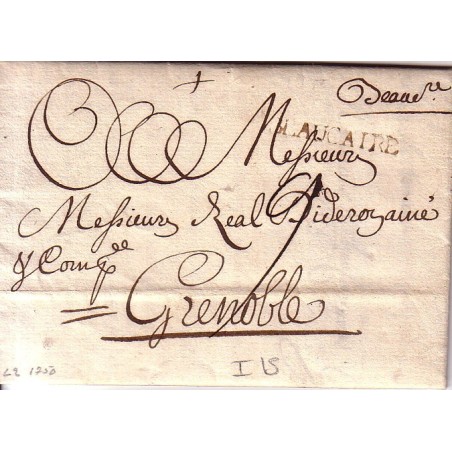 Beauc.re
BLAUCAIRE
Messieurs
Messieurs Real Dideroyainé
& Comp.ie
Grenoble
L2 1750
I 15